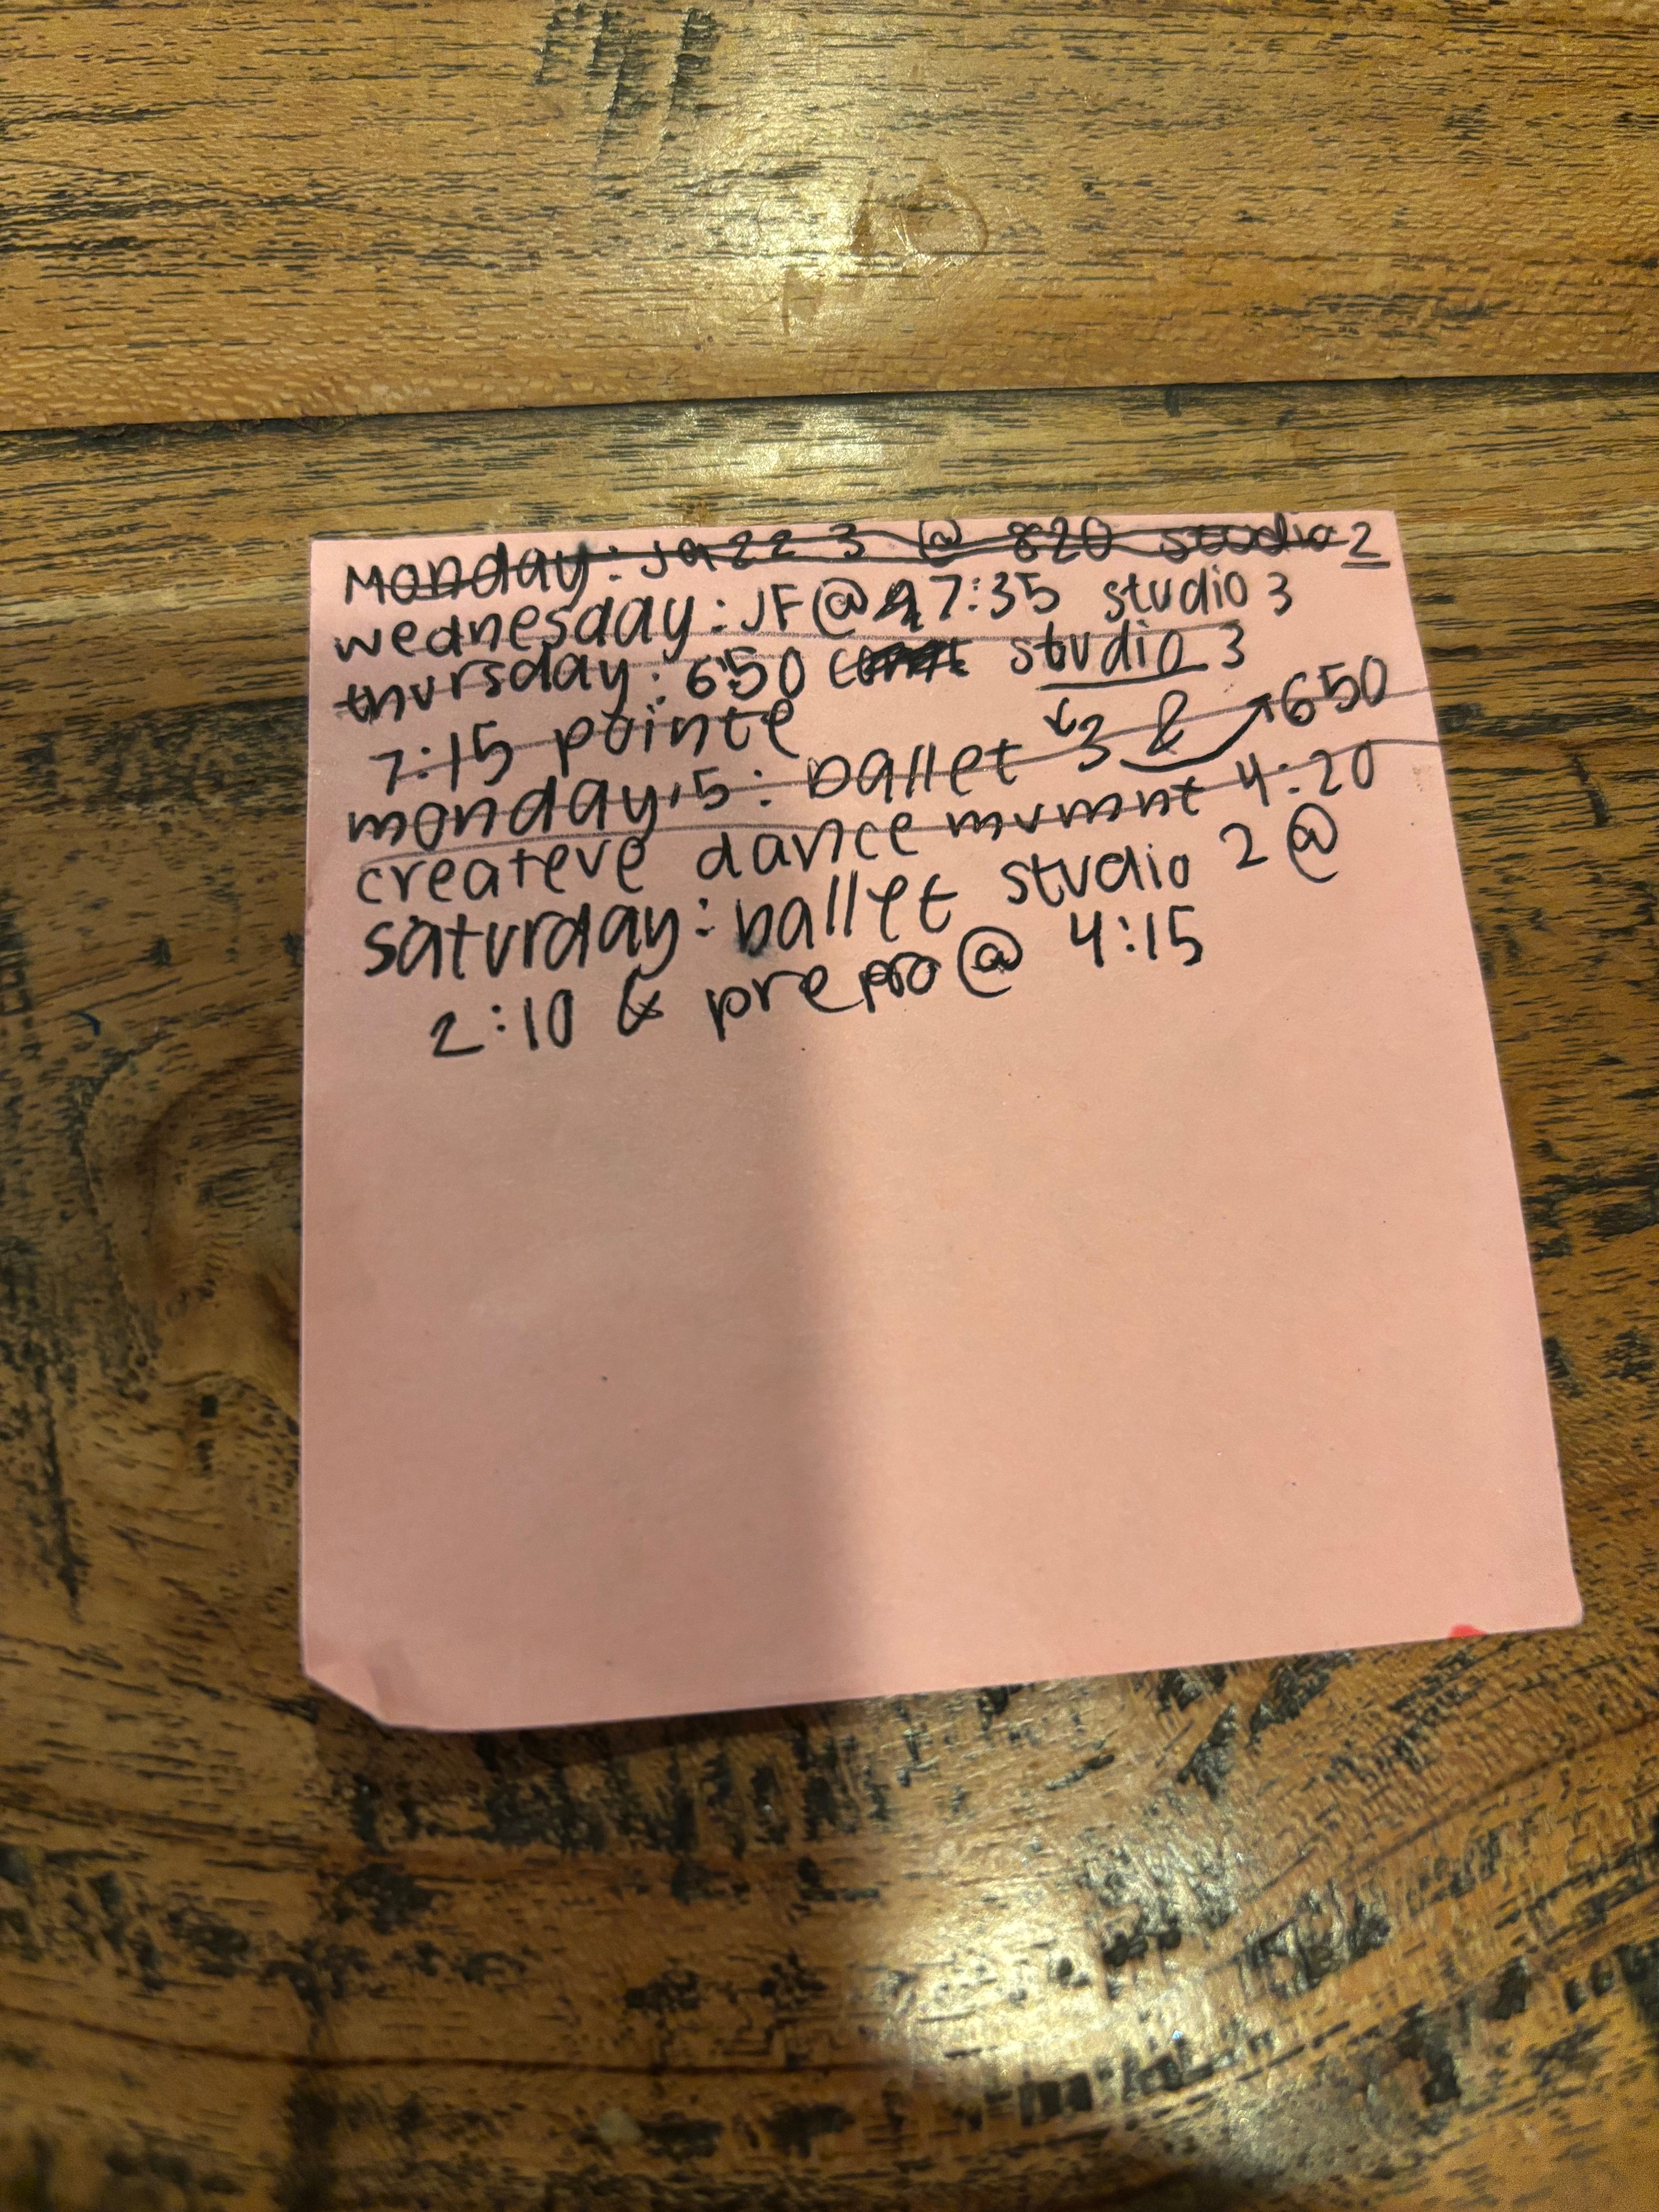 Monday: Jazz 3 @ 820 studio 2
wednesday: JF @ 7:35 studio 3
thursday: 650 studio 3
7:15 pointe
monday,5: ballet 3 & 650
createve dance mvmnt 4:20
saturday: ballet studio 2 @
2:10 & prepro @ 4:15